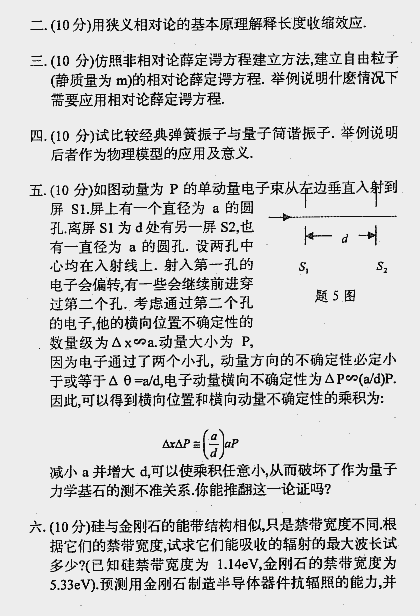 二. (10 分)用狭义相对论的基本原理解释长度收缩效应.
三. (10 分)仿照非相对论薛定谔方程建立方法,建立自由粒子
(静质量为 m)的相对论薛定谔方程. 举例说明什麽情况下
需要应用相对论薛定谔方程.
四. (10 分)试比较经典弹簧振子与量子简谐振子. 举例说明
后者作为物理模型的应用及意义.
五. (10 分)如图动量为 P 的单动量电子束从左边垂直入射到
屏 S1.屏上有一个直径为 a 的圆
孔.离屏 S1 为 d 处有另一屏 S2,也
有一直径为 a 的圆孔. 设两孔中
心均在入射线上. 射入第一孔的
电子会偏转,有一些会继续前进穿
过第二个孔. 考虑通过第二个孔
的电子,他的横向位置不确定性的
数量级为 Δx∞a.动量大小为 P,
d
S₁ S₂
题 5 图
因为电子通过了两个小孔, 动量方向的不确定性必定小
于或等于 Δ θ=a/d,电子动量横向不确定性为 ΔP∞(a/d)P.
因此,可以得到横向位置和横向动量不确定性的乘积为:
ΔxΔP ≅ (a/d) aP
减小 a 并增大 d,可以使乘积任意小,从而破坏了作为量子
力学基石的测不准关系.你能推翻这一论证吗?
六. (10 分)硅与金刚石的能带结构相似,只是禁带宽度不同.根
据它们的禁带宽度,试求它们能吸收的辐射的最大波长试
多少?(已知硅禁带宽度为 1.14eV,金刚石的禁带宽度为
5.33eV).预测用金刚石制造半导体器件抗辐照的能力,并